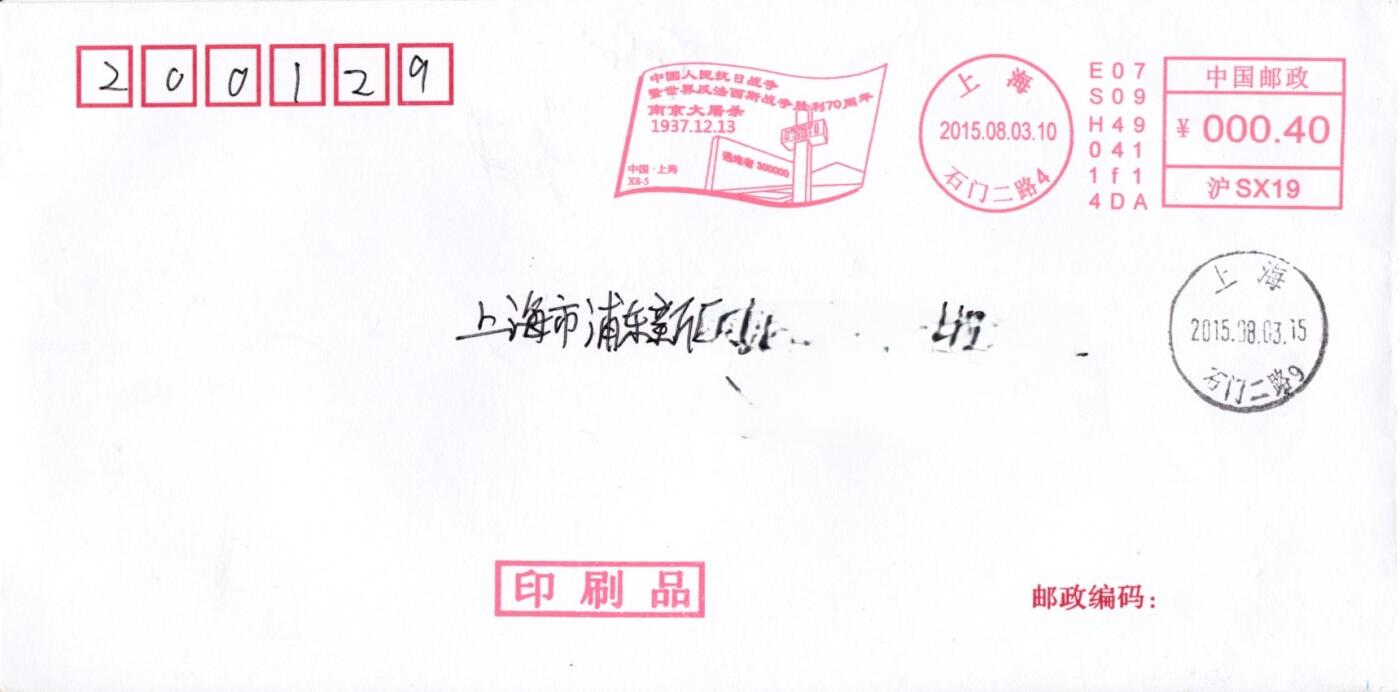 200129
中国人民抗日战争
暨世界反法西斯战争胜利70周年
南京大屠杀
1937.12.13
遇难者 300000
中国·上海
X8-5
上海
2015.08.03.10
石门二路4
E07
S09
H49
041
1f1
4DA
中国邮政
¥ 000.40
沪SX19
上海
2015.08.03.15
石门二路9
上海市浦东新区
印刷品
邮政编码: